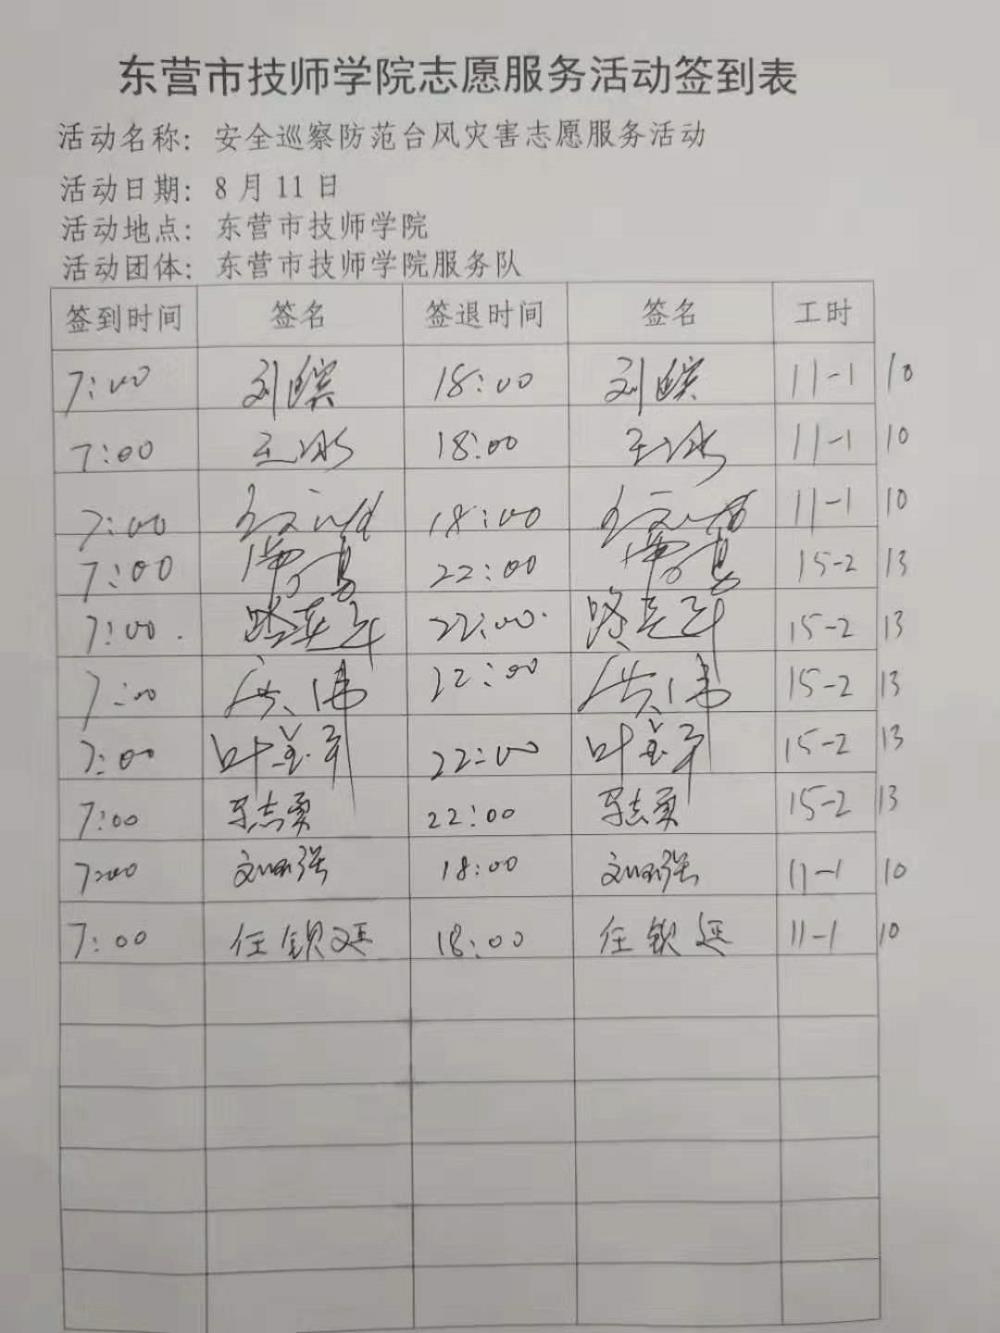 东营市技师学院志愿服务活动签到表
活动名称：安全巡察防范台风灾害志愿服务活动
活动日期：8月11日
活动地点：东营市技师学院
活动团体：东营市技师学院服务队
签到时间 签名 签退时间 签名 工时
7:00 刘 18:00 刘 11-1 10
7:00 王冰 18:00 王冰 11-1 10
7:00 18:00 11-1 10
7:00 22:00 15-2 13
7:00. 路 22:00. 路 15-2 13
7:00 洪伟 22:00 洪伟 15-2 13
7:00 叶 22:00 叶 15-2 13
7:00 志勇 22:00 志勇 15-2 13
7:00 强 18:00 强 11-1 10
7:00 任钦延 18:00 任钦延 11-1 10